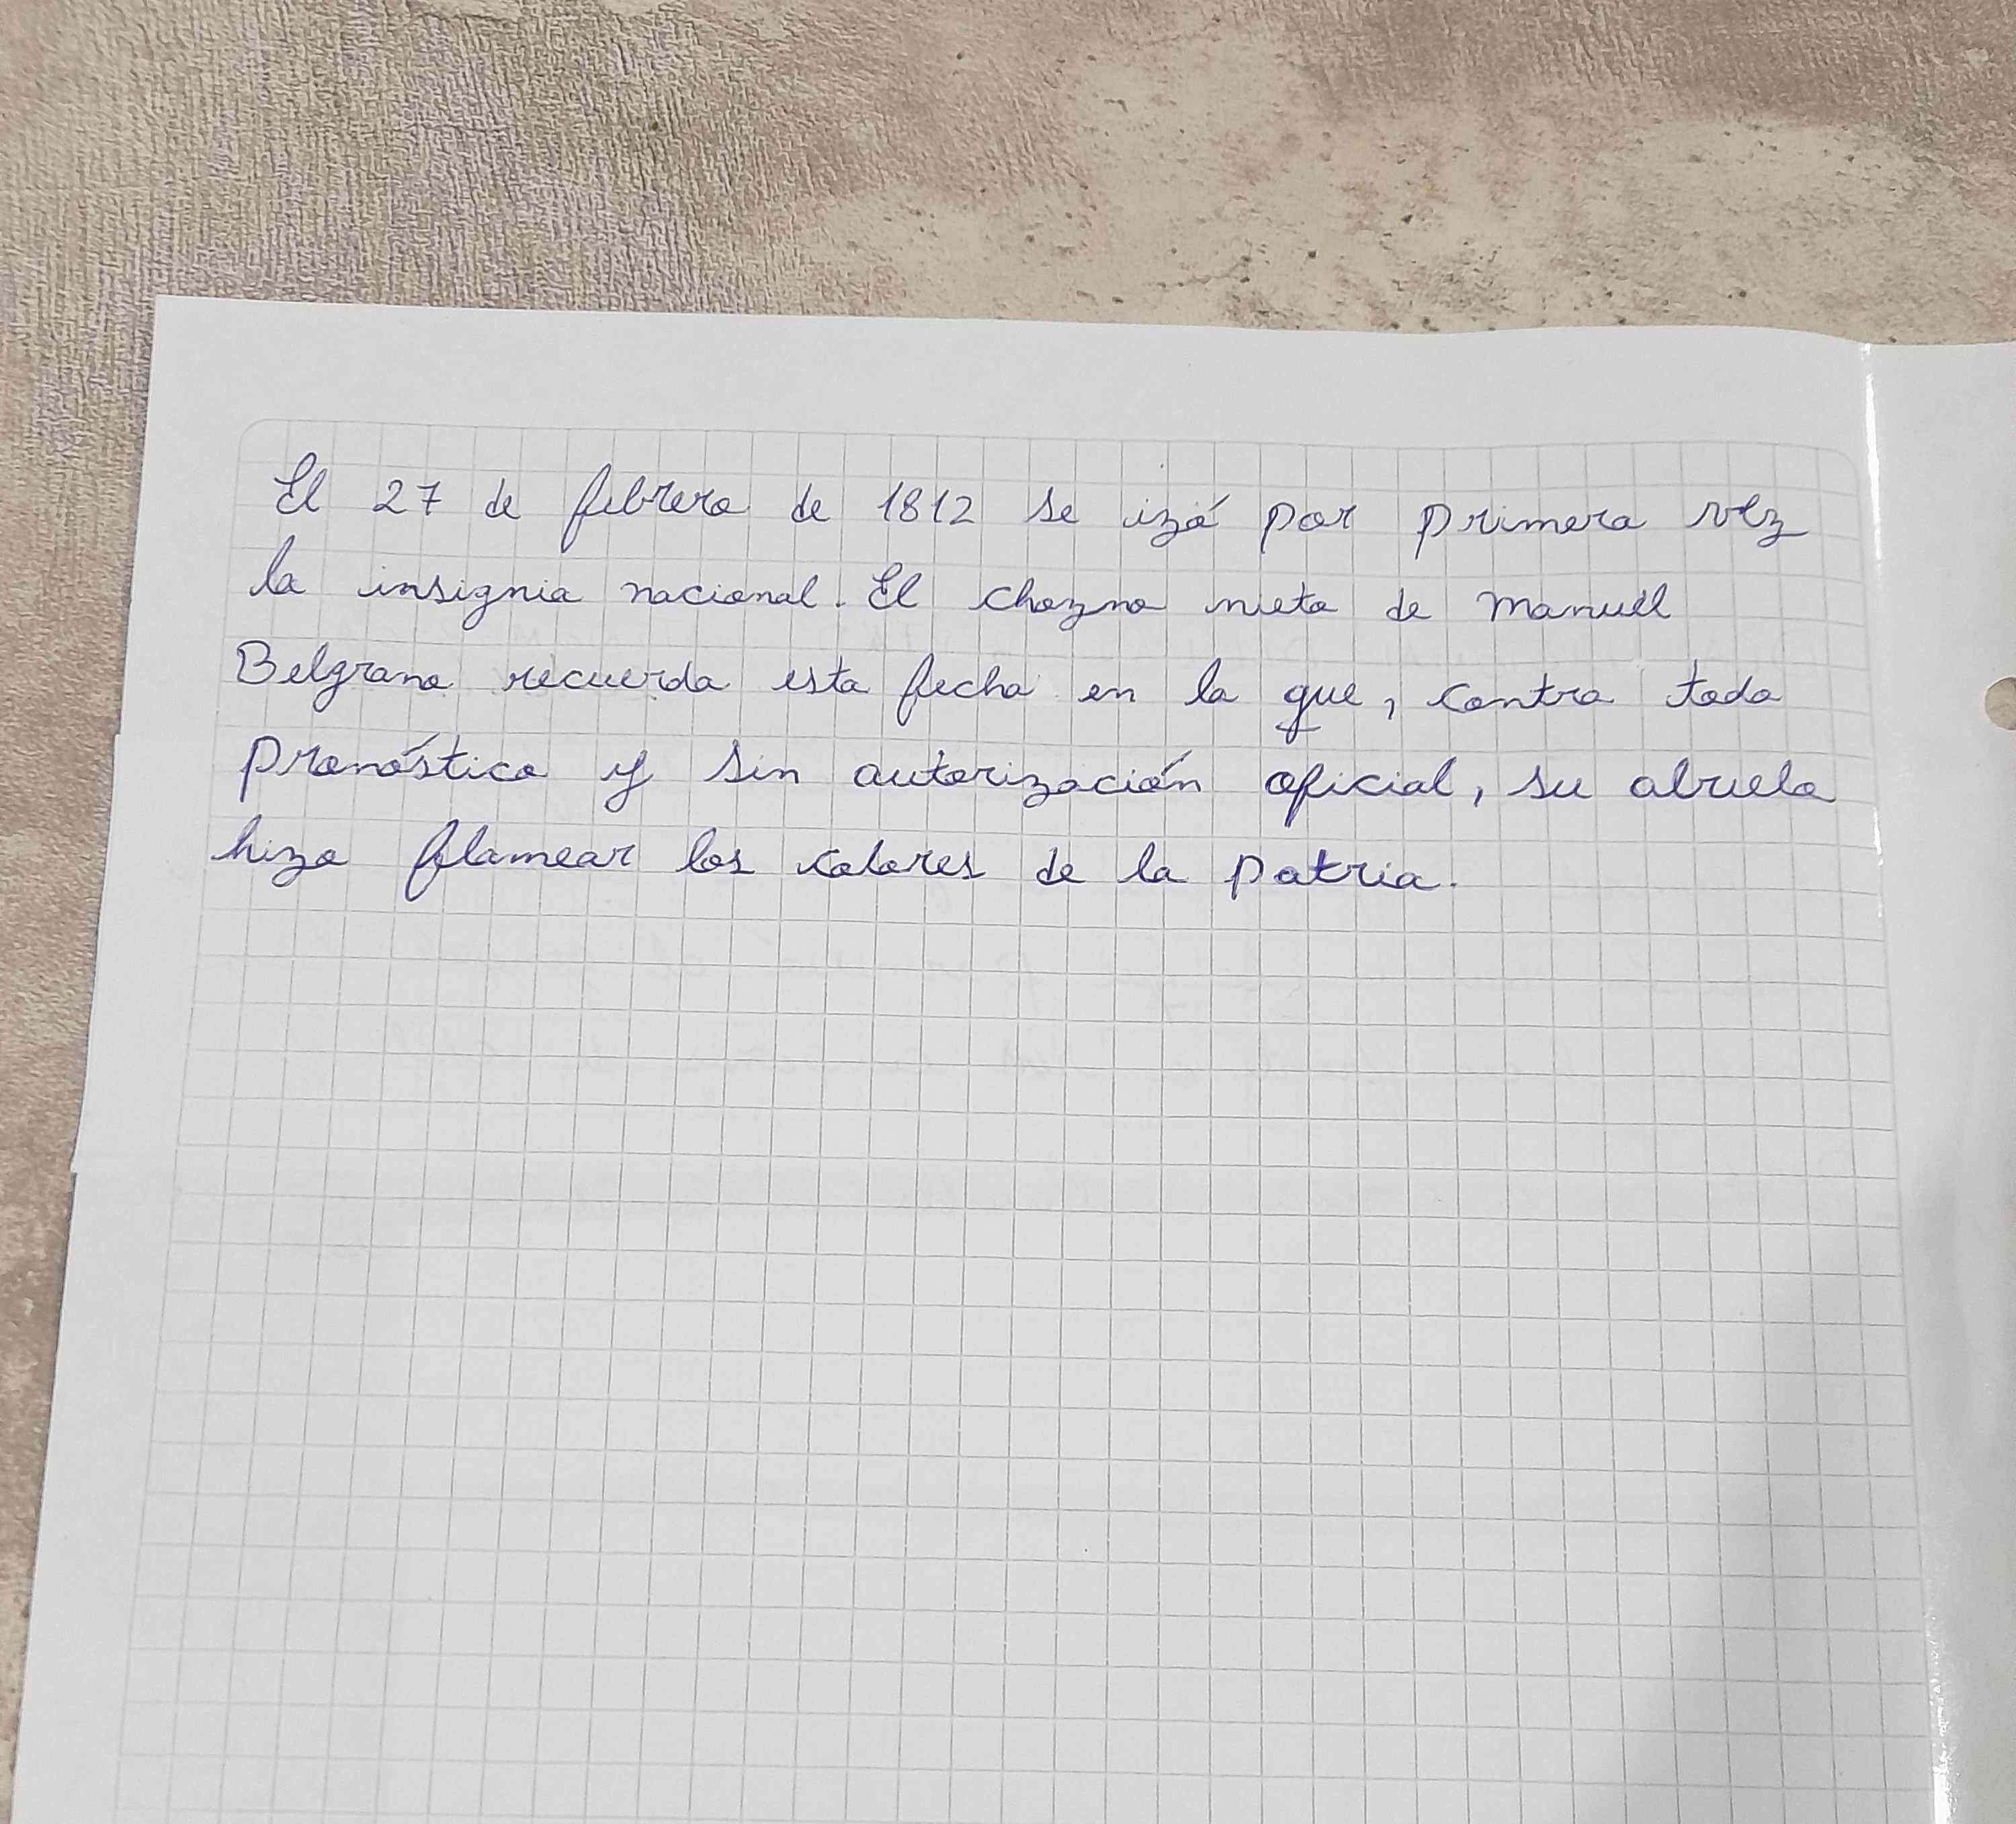 El 27 de febrero de 1812 se izó por primera vez
la insignia nacional. El chozno nieto de Manuel
Belgrano recuerda esta fecha en la que, contra todo
pronóstico y sin autorización oficial, su abuelo
hizo flamear los colores de la patria.